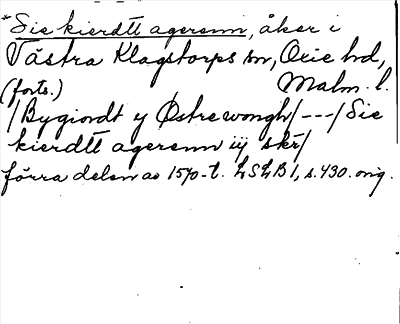 *Sie kierdtt agerenn, åker i
Västra Klagstorps sn, Oxie hd,
(forts.) Malm. l.
/Bygiordt y Østre wongh/---/Sie
kierdtt agerenn iij skr/
förra delen av 1570-t. LSLB 1, s. 430. orig.